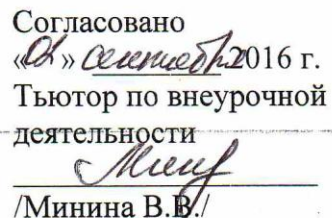 Согласовано
«01» сентября 2016 г.
Тьютор по внеурочной
деятельности
/Минина В.В./